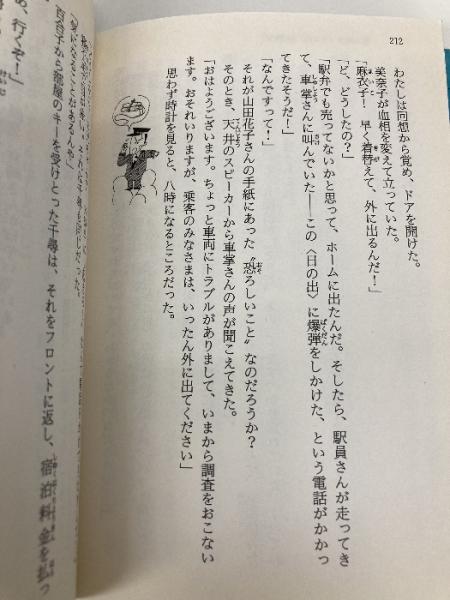 212
わたしは回想から覚め、ドアを開けた。
美奈子が血相を変えて立っていた。
「麻衣子！　早く着替えて、外に出るんだ！」
「ど、どうしたの？」
「駅弁でも売ってないかと思って、ホームに出たんだ。そしたら、駅員さんが走ってき
て、車掌さんに叫んでいた――この〈日の出〉に爆弾をしかけた、という電話がかかっ
てきたそうだ！」
「なんですって！」
それが山田花子さんの手紙にあった〝恐ろしいこと〟なのだろうか？
そのとき、天井のスピーカーから車掌さんの声が聞こえてきた。
「おはようございます。ちょっと車両にトラブルがありまして、いまから調査をおこない
ます。おそれいりますが、乗客のみなさまは、いったん外に出てください」
思わず時計を見ると、八時になるところだった。
百合子から部屋のキーを受けとった千尋は、それをフロントに返し、宿泊料金を払っ
め、行くぞ！」